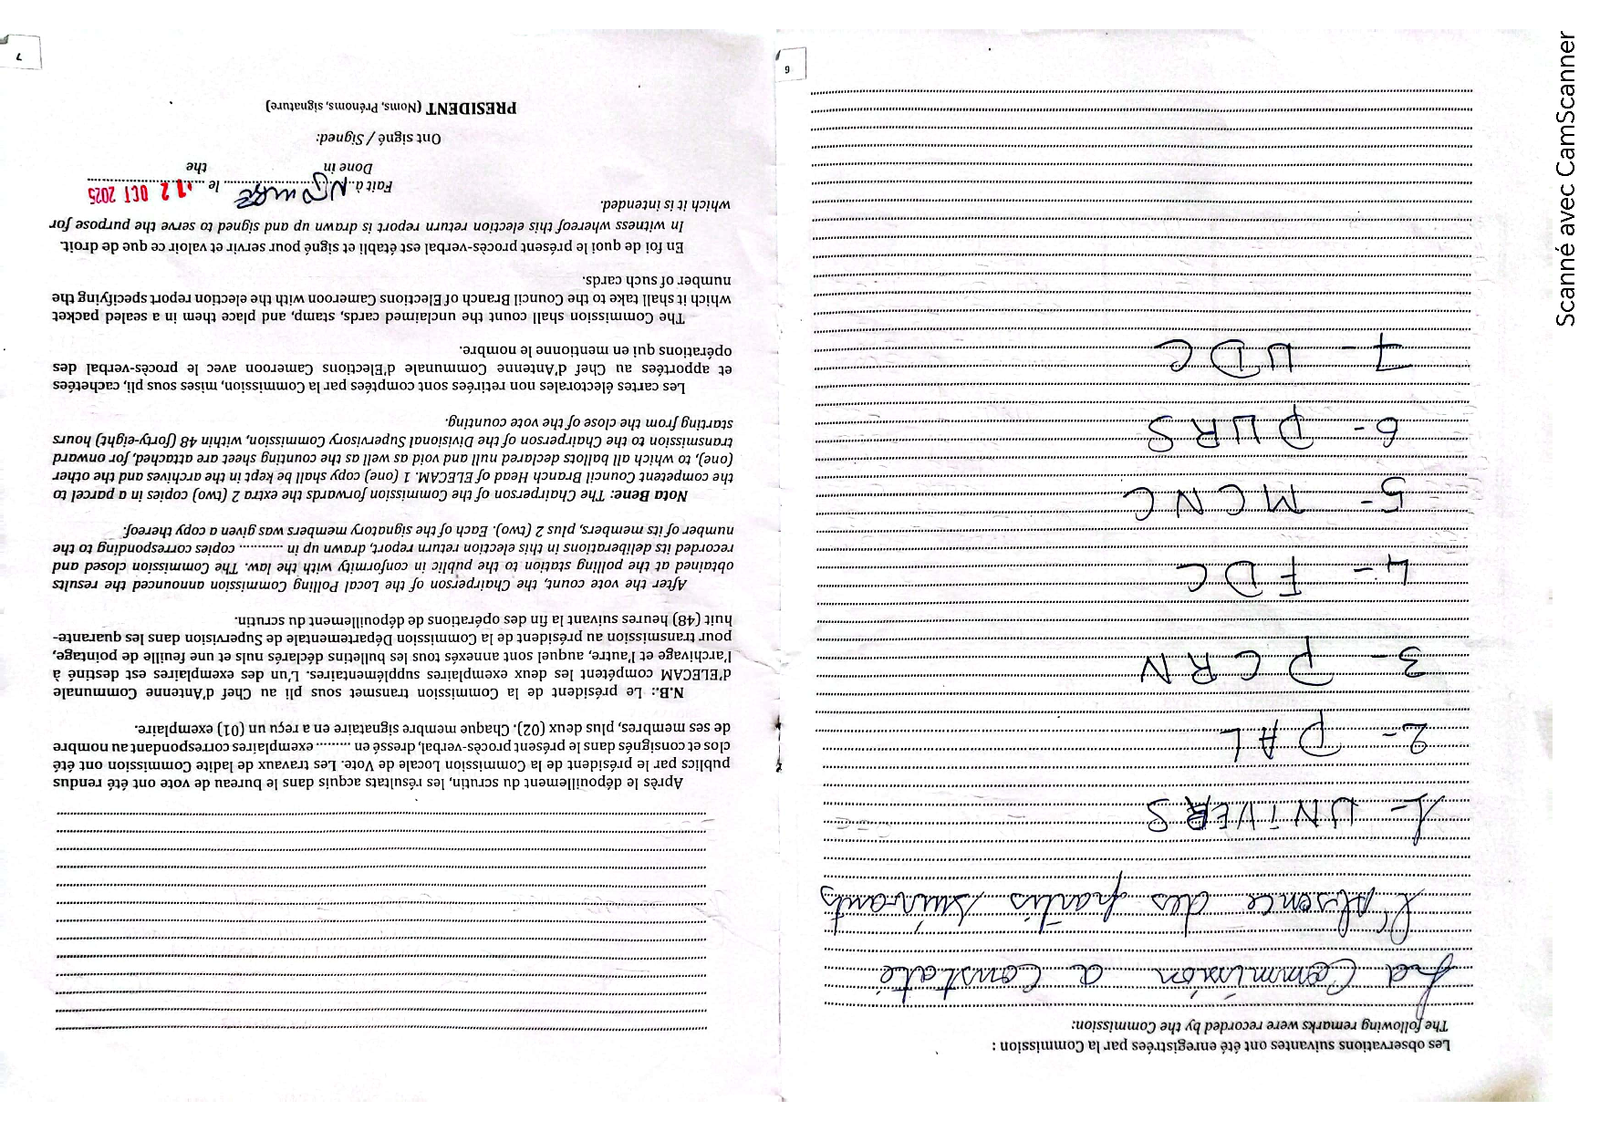 Les observations suivantes ont été enregistrées par la Commission :
The following remarks were recorded by the Commission:
La Commission a constaté
l'absence des partis suivants
1- UNIVERS
2- PAL
3- PCRN
4- FDC
5- MCNC
6- PURS
7- UDC
6
Après le dépouillement du scrutin, les résultats acquis dans le bureau de vote ont été rendus
publics par le président de la Commission Locale de Vote. Les travaux de ladite Commission ont été
clos et consignés dans le présent procès-verbal, dressé en ......... exemplaires correspondant au nombre
de ses membres, plus deux (02). Chaque membre signataire en a reçu un (01) exemplaire.
N.B.: Le président de la Commission transmet sous pli au Chef d'Antenne Communale
d'ELECAM compétent les deux exemplaires supplémentaires. L'un des exemplaires est destiné à
l'archivage et l'autre, auquel sont annexés tous les bulletins déclarés nuls et une feuille de pointage,
pour transmission au président de la Commission Départementale de Supervision dans les quarante-
huit (48) heures suivant la fin des opérations de dépouillement du scrutin.
After the vote count, the Chairperson of the Local Polling Commission announced the results
obtained at the polling station to the public in conformity with the law. The Commission closed and
recorded its deliberations in this election return report, drawn up in ........... copies corresponding to the
number of its members, plus 2 (two). Each of the signatory members was given a copy thereof.
Nota Bene: The Chairperson of the Commission forwards the extra 2 (two) copies in a parcel to
the competent Council Branch Head of ELECAM. 1 (one) copy shall be kept in the archives and the other
(one), to which all ballots declared null and void as well as the counting sheet are attached, for onward
transmission to the Chairperson of the Divisional Supervisory Commission, within 48 (forty-eight) hours
starting from the close of the vote counting.
Les cartes électorales non retirées sont comptées par la Commission, mises sous pli, cachetées
et apportées au Chef d'Antenne Communale d'Elections Cameroon avec le procès-verbal des
opérations qui en mentionne le nombre.
The Commission shall count the unclaimed cards, stamp, and place them in a sealed packet
which it shall take to the Council Branch of Elections Cameroon with the election report specifying the
number of such cards.
En foi de quoi le présent procès-verbal est établi et signé pour servir et valoir ce que de droit.
In witness whereof this election return report is drawn up and signed to serve the purpose for
which it is intended.
Fait à le 12 OCT 2025
Done in the
Ont signé / Signed:
PRESIDENT (Noms, Prénoms, signature)
7
Scanné avec CamScanner